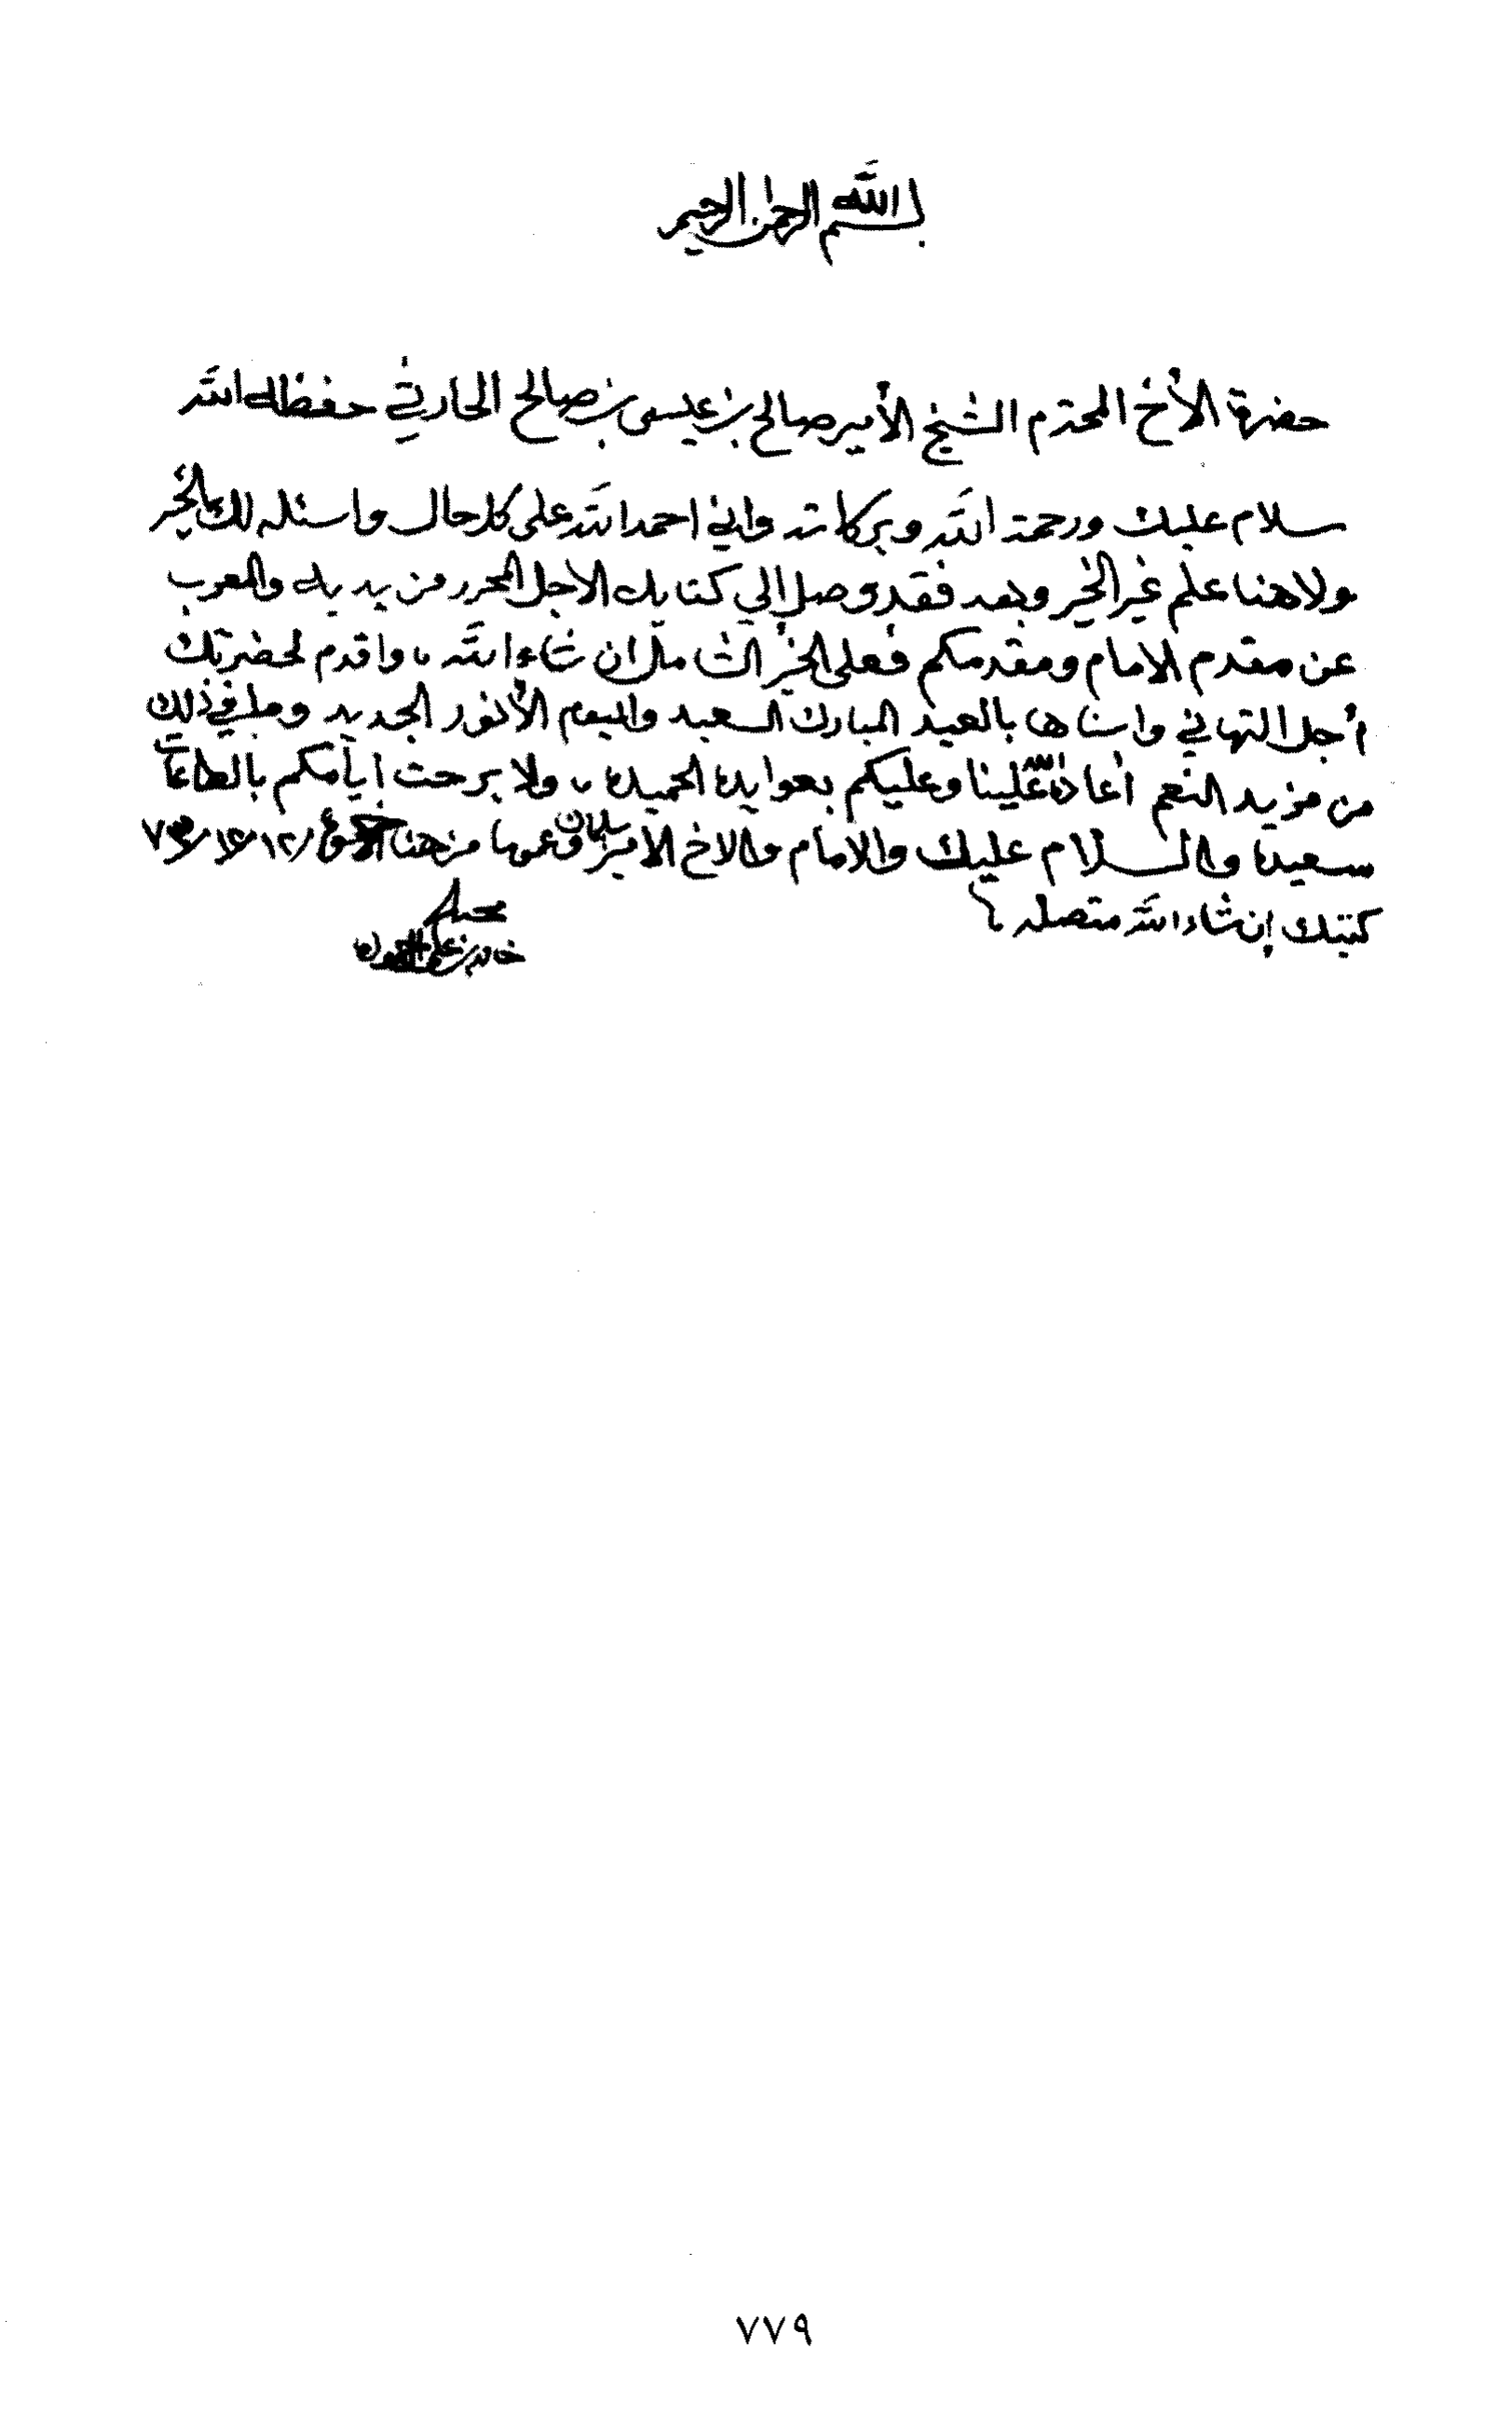 بسم الله الرحمن الرحيم
حضرة الأخ المحترم الشيخ الأمير صالح بن عيسى بن صالح الحارثي حفظه الله
سلام عليك ورحمة الله وبركاته واني احمد الله على كل حال واسئله لك بالخير
ولا هنا علم غير الخير وبعد فقد وصل إلي كتابك الأجل المحرر من يديك والمعرب
عن مقدم الامام ومقدمكم فعلى الخير الشامل ان شاء الله ، واقدم لحضرتك
أجل التهاني واسناها بالعيد المبارك السعيد واليوم الأنور الجديد وما في ذلك
من مزيد النعم أعاده الله علينا وعليكم بعوايده الحميده ، ولا برحت أيامكم بالطاعات
سعيدة والسلام عليك والامام والاخ الامير سليمان وعموما من هنا ١٢/
كتبك إن شاء الله متصله
محبكم
٧٧٩